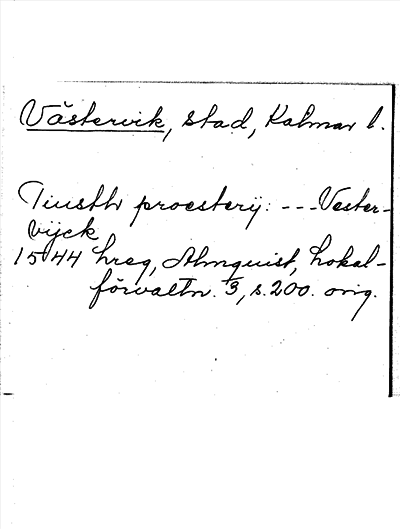 Västervik, stad, Kalmar l.
Tiusth proesterij: --- Vester-
vijck
1544 hreg, Almquist, Lokal-
förvaltn. 3, s. 200. orig.